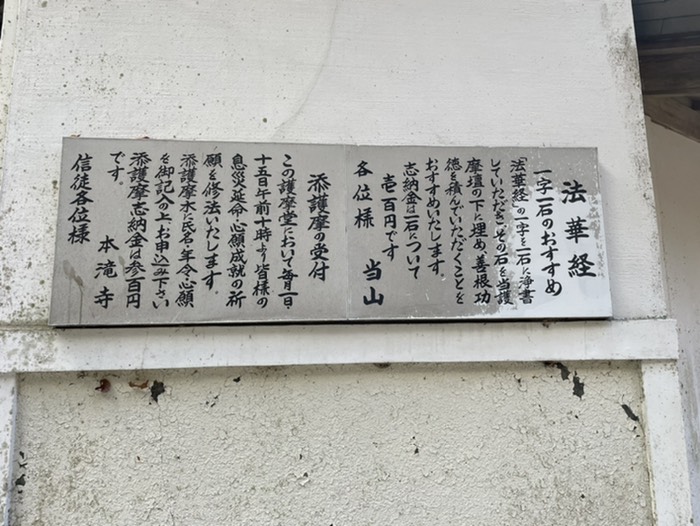 法華経
一字一石のおすすめ
「法華経」の一字を一石に浄書
していただき、その石を当護
摩壇の下に埋め、善根功
徳を積んでいただくことを
おすすめいたします。
志納金は一石について
壱百円です
各位様 当山
添護摩の受付
この護摩堂において毎月一日・
十五日午前十時より皆様の
息災延命・心願成就の祈
願を修法いたします。
添護摩木に氏名・年令・心願
を御記入の上お申込み下さい
添護摩志納金は参百円
です。
本滝寺
信徒各位様